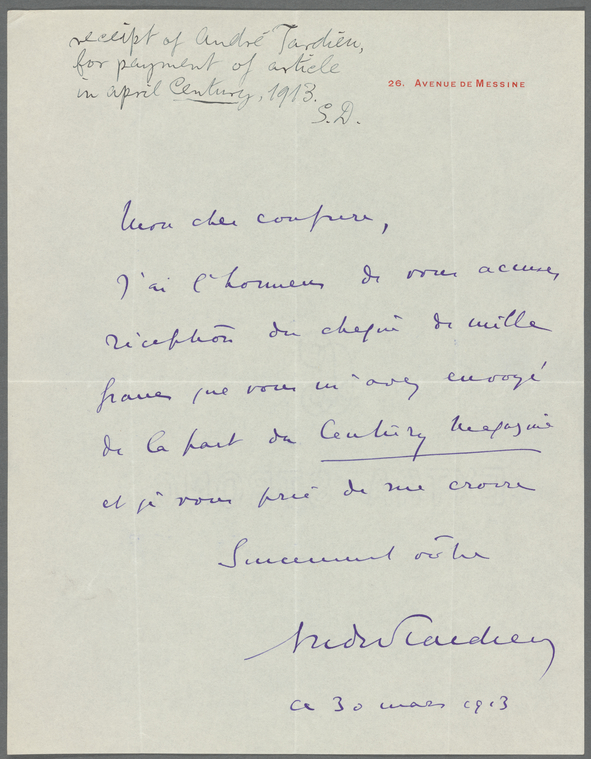 receipt of André Tardieu,
for payment of article
in april Century, 1913.
S.D.
26, AVENUE DE MESSINE
Mon cher confrere,
J'ai l'honneur de vous accuser
réception du chèque de mille
francs que vous m'avez envoyé
de la part du Century Magazine
et je vous prie de me croire
Sincerement vôtre
André Tardieu
ce 30 mars 1913